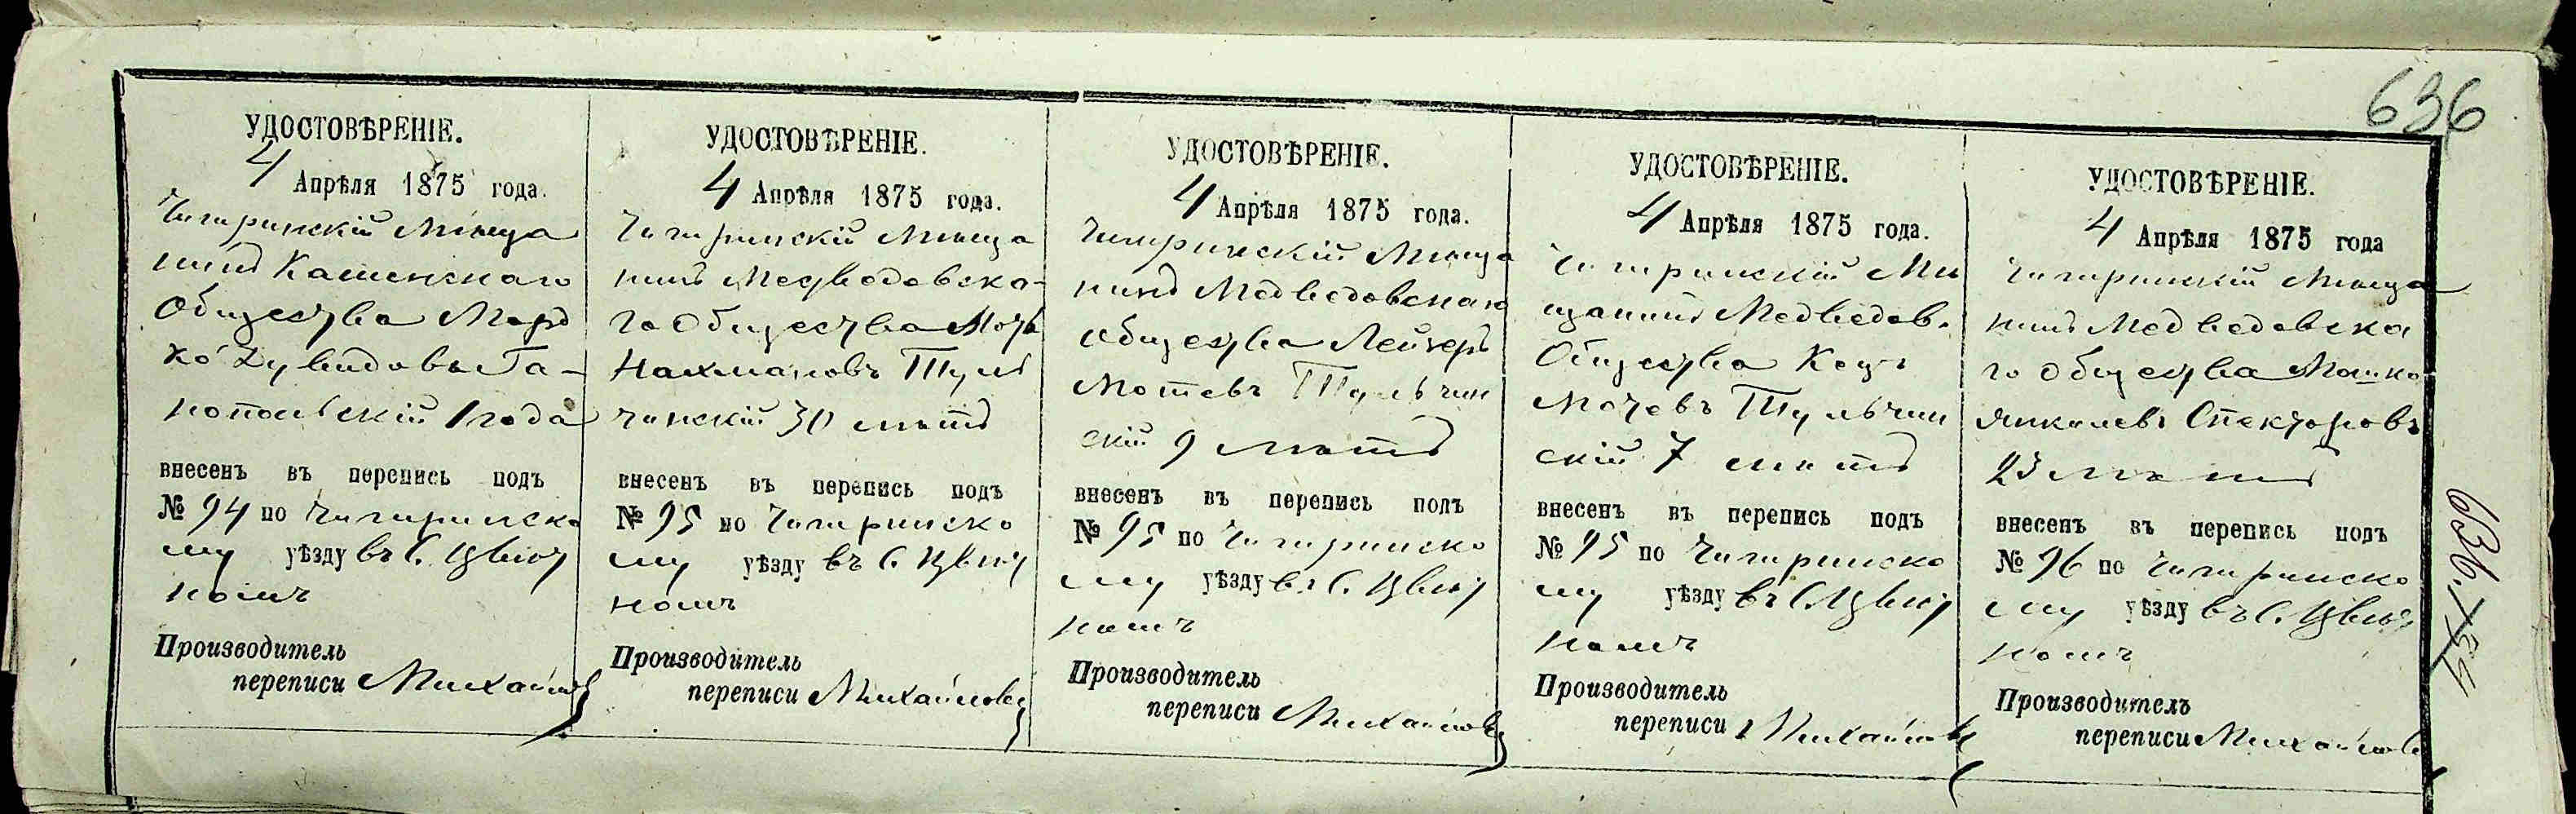 636
УДОСТОВѢРЕНІЕ.
4 Апрѣля 1875 года.
Чигиринскій Мѣща
нинъ Каменскаго
Общества Мордко
ко Дувидовъ Га-
нопольскій 1 года
внесенъ въ перепись подъ
№ 94 по Чигиринско
му уѣзду въ с. Цвѣт
номъ
Производитель
переписи Михайловъ
УДОСТОВѢРЕНІЕ.
4 Апрѣля 1875 года.
Чигиринскій Мѣща
нинъ Медведовска-
го Общества Мотя
Нахмановъ Туль
чинскій 30 лѣтъ
внесенъ въ перепись подъ
№ 95 по Чигиринско
му уѣзду въ с. Цвѣт
номъ
Производитель
переписи Михайловъ
УДОСТОВѢРЕНІЕ.
4 Апрѣля 1875 года.
Чигиринскій Мѣща
нинъ Медведовскаго
Общества Лейзеръ
Мотевъ Тульчин
скій 9 лѣтъ
внесенъ въ перепись подъ
№ 95 по Чигиринско
му уѣзду въ с. Цвѣт
номъ
Производитель
переписи Михайловъ
УДОСТОВѢРЕНІЕ.
4 Апрѣля 1875 года.
Чигиринскій Мѣ
щанинъ Медведов.
Общества
Мотевъ Тульчин
скій 7 лѣтъ
внесенъ въ перепись подъ
№ 95 по Чигиринско
му уѣзду въ с. Цвѣт
номъ
Производитель
переписи Михайловъ
УДОСТОВѢРЕНІЕ.
4 Апрѣля 1875 года
Чигиринскій Мѣща
нинъ Медведовска
го Общества Мошко
Янкелевъ Спекторовъ
23 лѣтъ
внесенъ въ перепись подъ
№ 96 по Чигиринско
му уѣзду въ с. Цвѣт
номъ
Производитель
переписи Михайловъ
636.